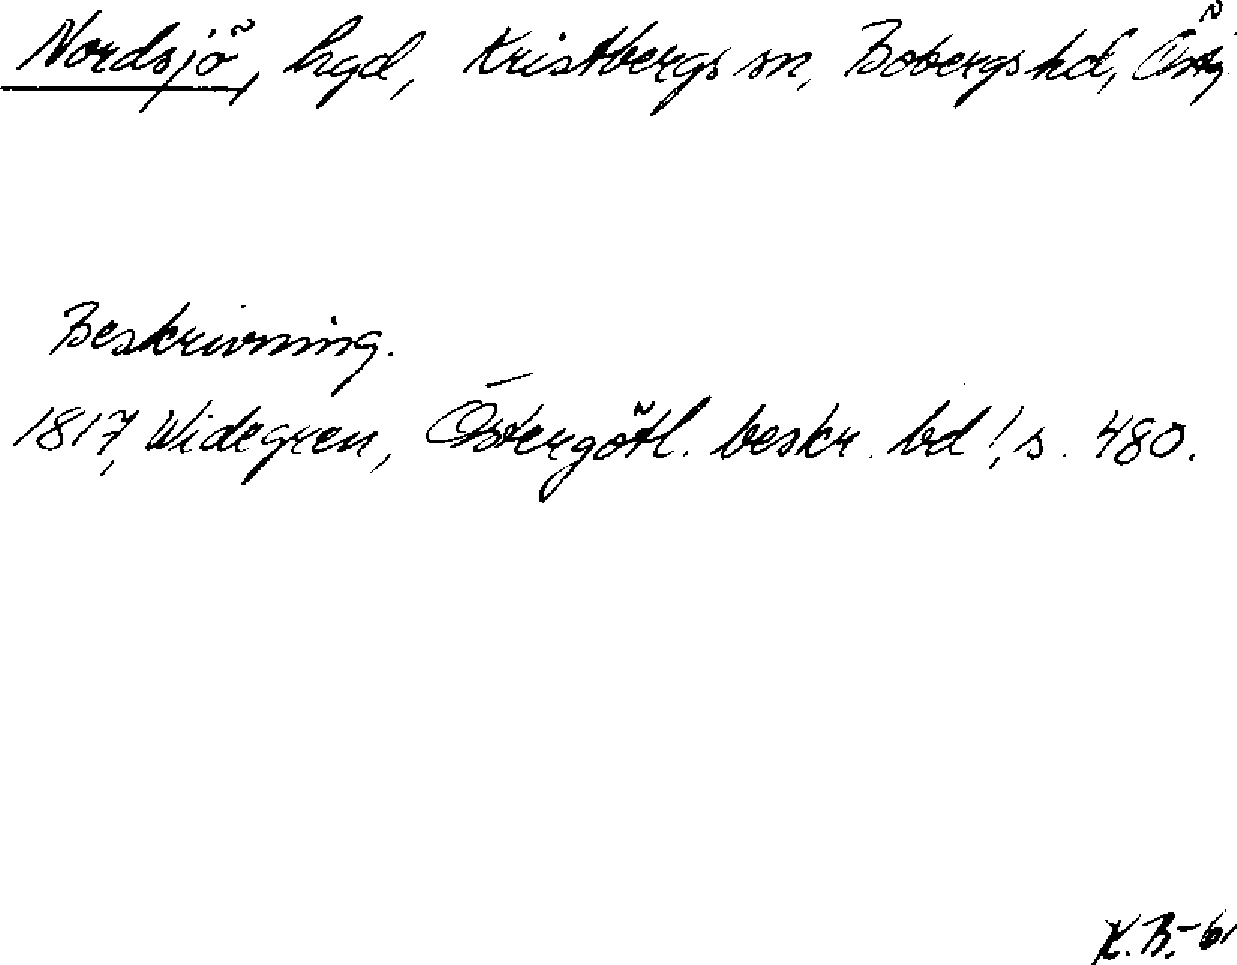 Nordsjö, hgd, Kristbergs sn, Bobergs hd, Östg
Beskrivning.
1817, Widegren, Östergötl. beskr. bd 1, s. 480.
K.B.-61